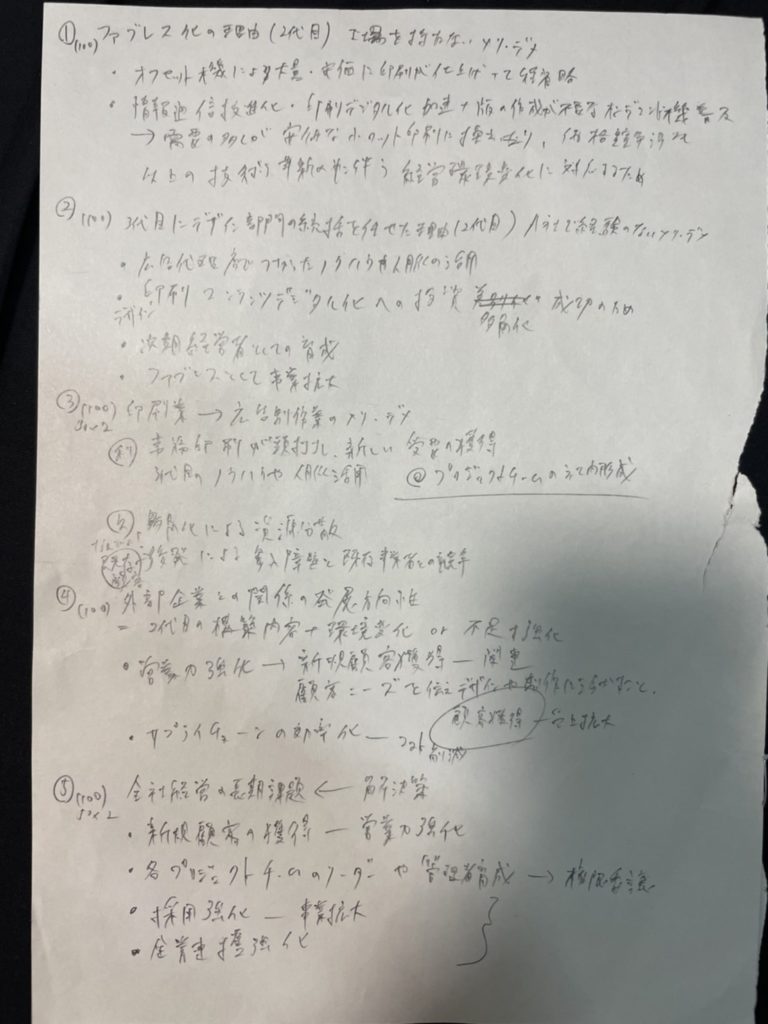 ① (100) ファブレス化の理由(2代目) 工場を持たないメリ・デメ
・オフセット機による大量・安価に印刷が仕上がって
・情報通信技進化・印刷デジタル化加速+版の作成が不要オンデマンド機普及
→需要の多くが安価な小ロット印刷に
以上の技術革新に伴う経営環境変化に対応するため
② (100) 3代目にデザイン部門の統括を任せた理由(2代目) 自社で経験のないメリ・デメ
・広告代理店でつちかったノウハウや人脈の活用
・印刷コンテンツデジタル化への投資 の成功のため
デザイン
多角化
・次期経営者としての育成
・ファブレスとして事業拡大
③ (100) 印刷業→広告制作業のメリ・デメ
50×2
印刷が頭打ち、新しい需要の獲得
3代目のノウハウや人脈活用 @プロジェクトチームの社内形成
多角化による資源分散
後発による参入障壁と既存事業者との競争
既存の
④ (100) 外部企業との関係の発展方向性
= 2代目の構築内容+環境変化 or 不足を強化
・営業力強化→新規顧客獲得 ― 関連
顧客ニーズを伝えデザインや制作に
顧客獲得 ― 売上拡大
・サプライチェーンの効率化 ― コスト削減
⑤ (100) 全社経営の長期課題 ← 解決策
50×2
・新規顧客の獲得 ― 営業力強化
・各プロジェクトチームのリーダーや管理者育成 → 権限委譲
・採用強化 ― 事業拡大
・全